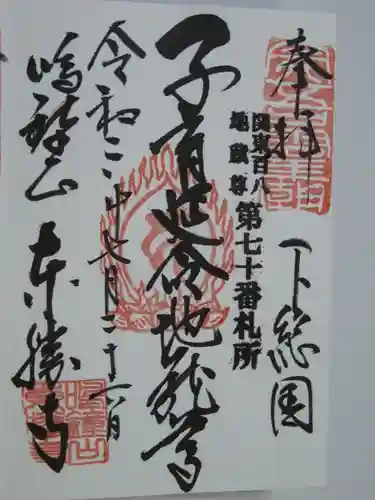 奉拝
下総国
関東百八
地蔵尊
第七十番札所
子育延命地蔵尊
令和二年七月二十六日
鳴鐘山
本勝寺